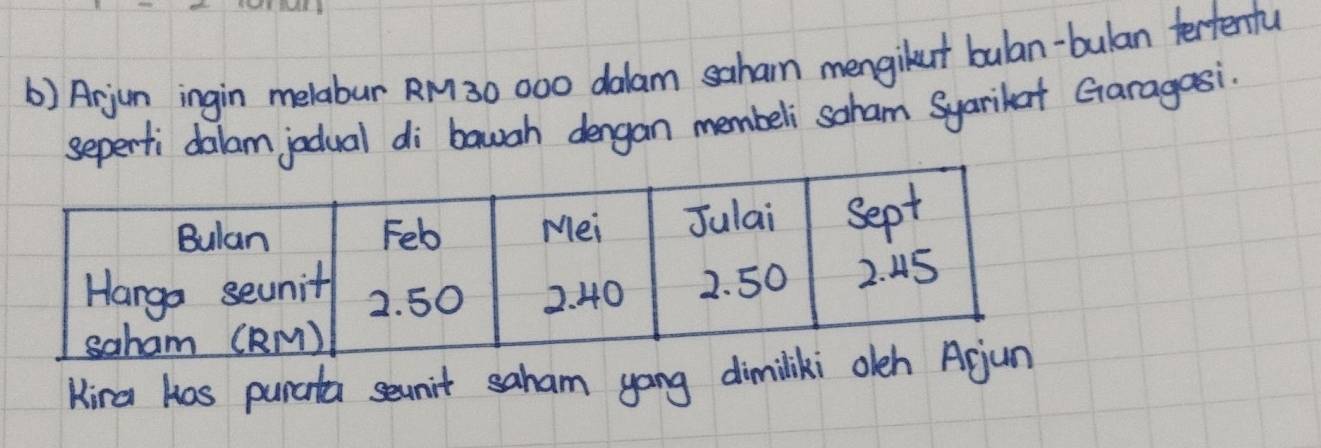 b) Arjun ingin melabur RM30 000 dalam saham mengikut bulan-bulan tertentu
seperti dalam jadual di bawah dengan membeli saham Syarikat Garagasi.
Bulan Feb Mei Julai Sept
Harga seunit saham (RM) 2.50 2.40 2.50 2.45
Kira kos purata seunit saham yang dimiliki oleh Arjun